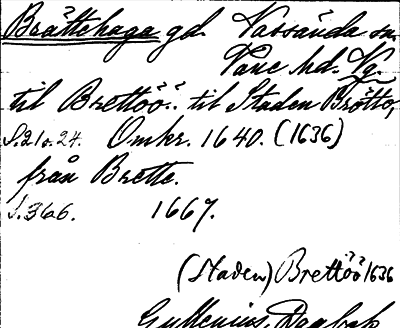 Bråttehaga gd. Vassända sn.
Väne hd. Vg.
til Brettöö.. til Staden Brötto,
S. 21 o. 24. Omkr. 1640. (1636)
från Brette.
S. 366. 1667.
(Staden) Brettöö 1636
Gyllenius, Dagbok